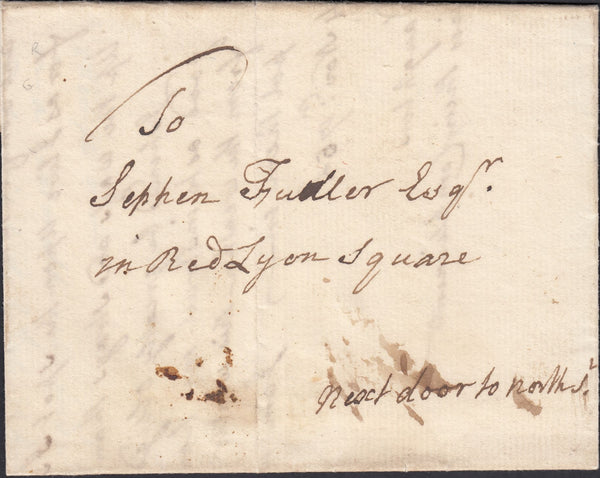 To
Sephen Fuller Esqr.
in Red Lyon Square
next door to north St